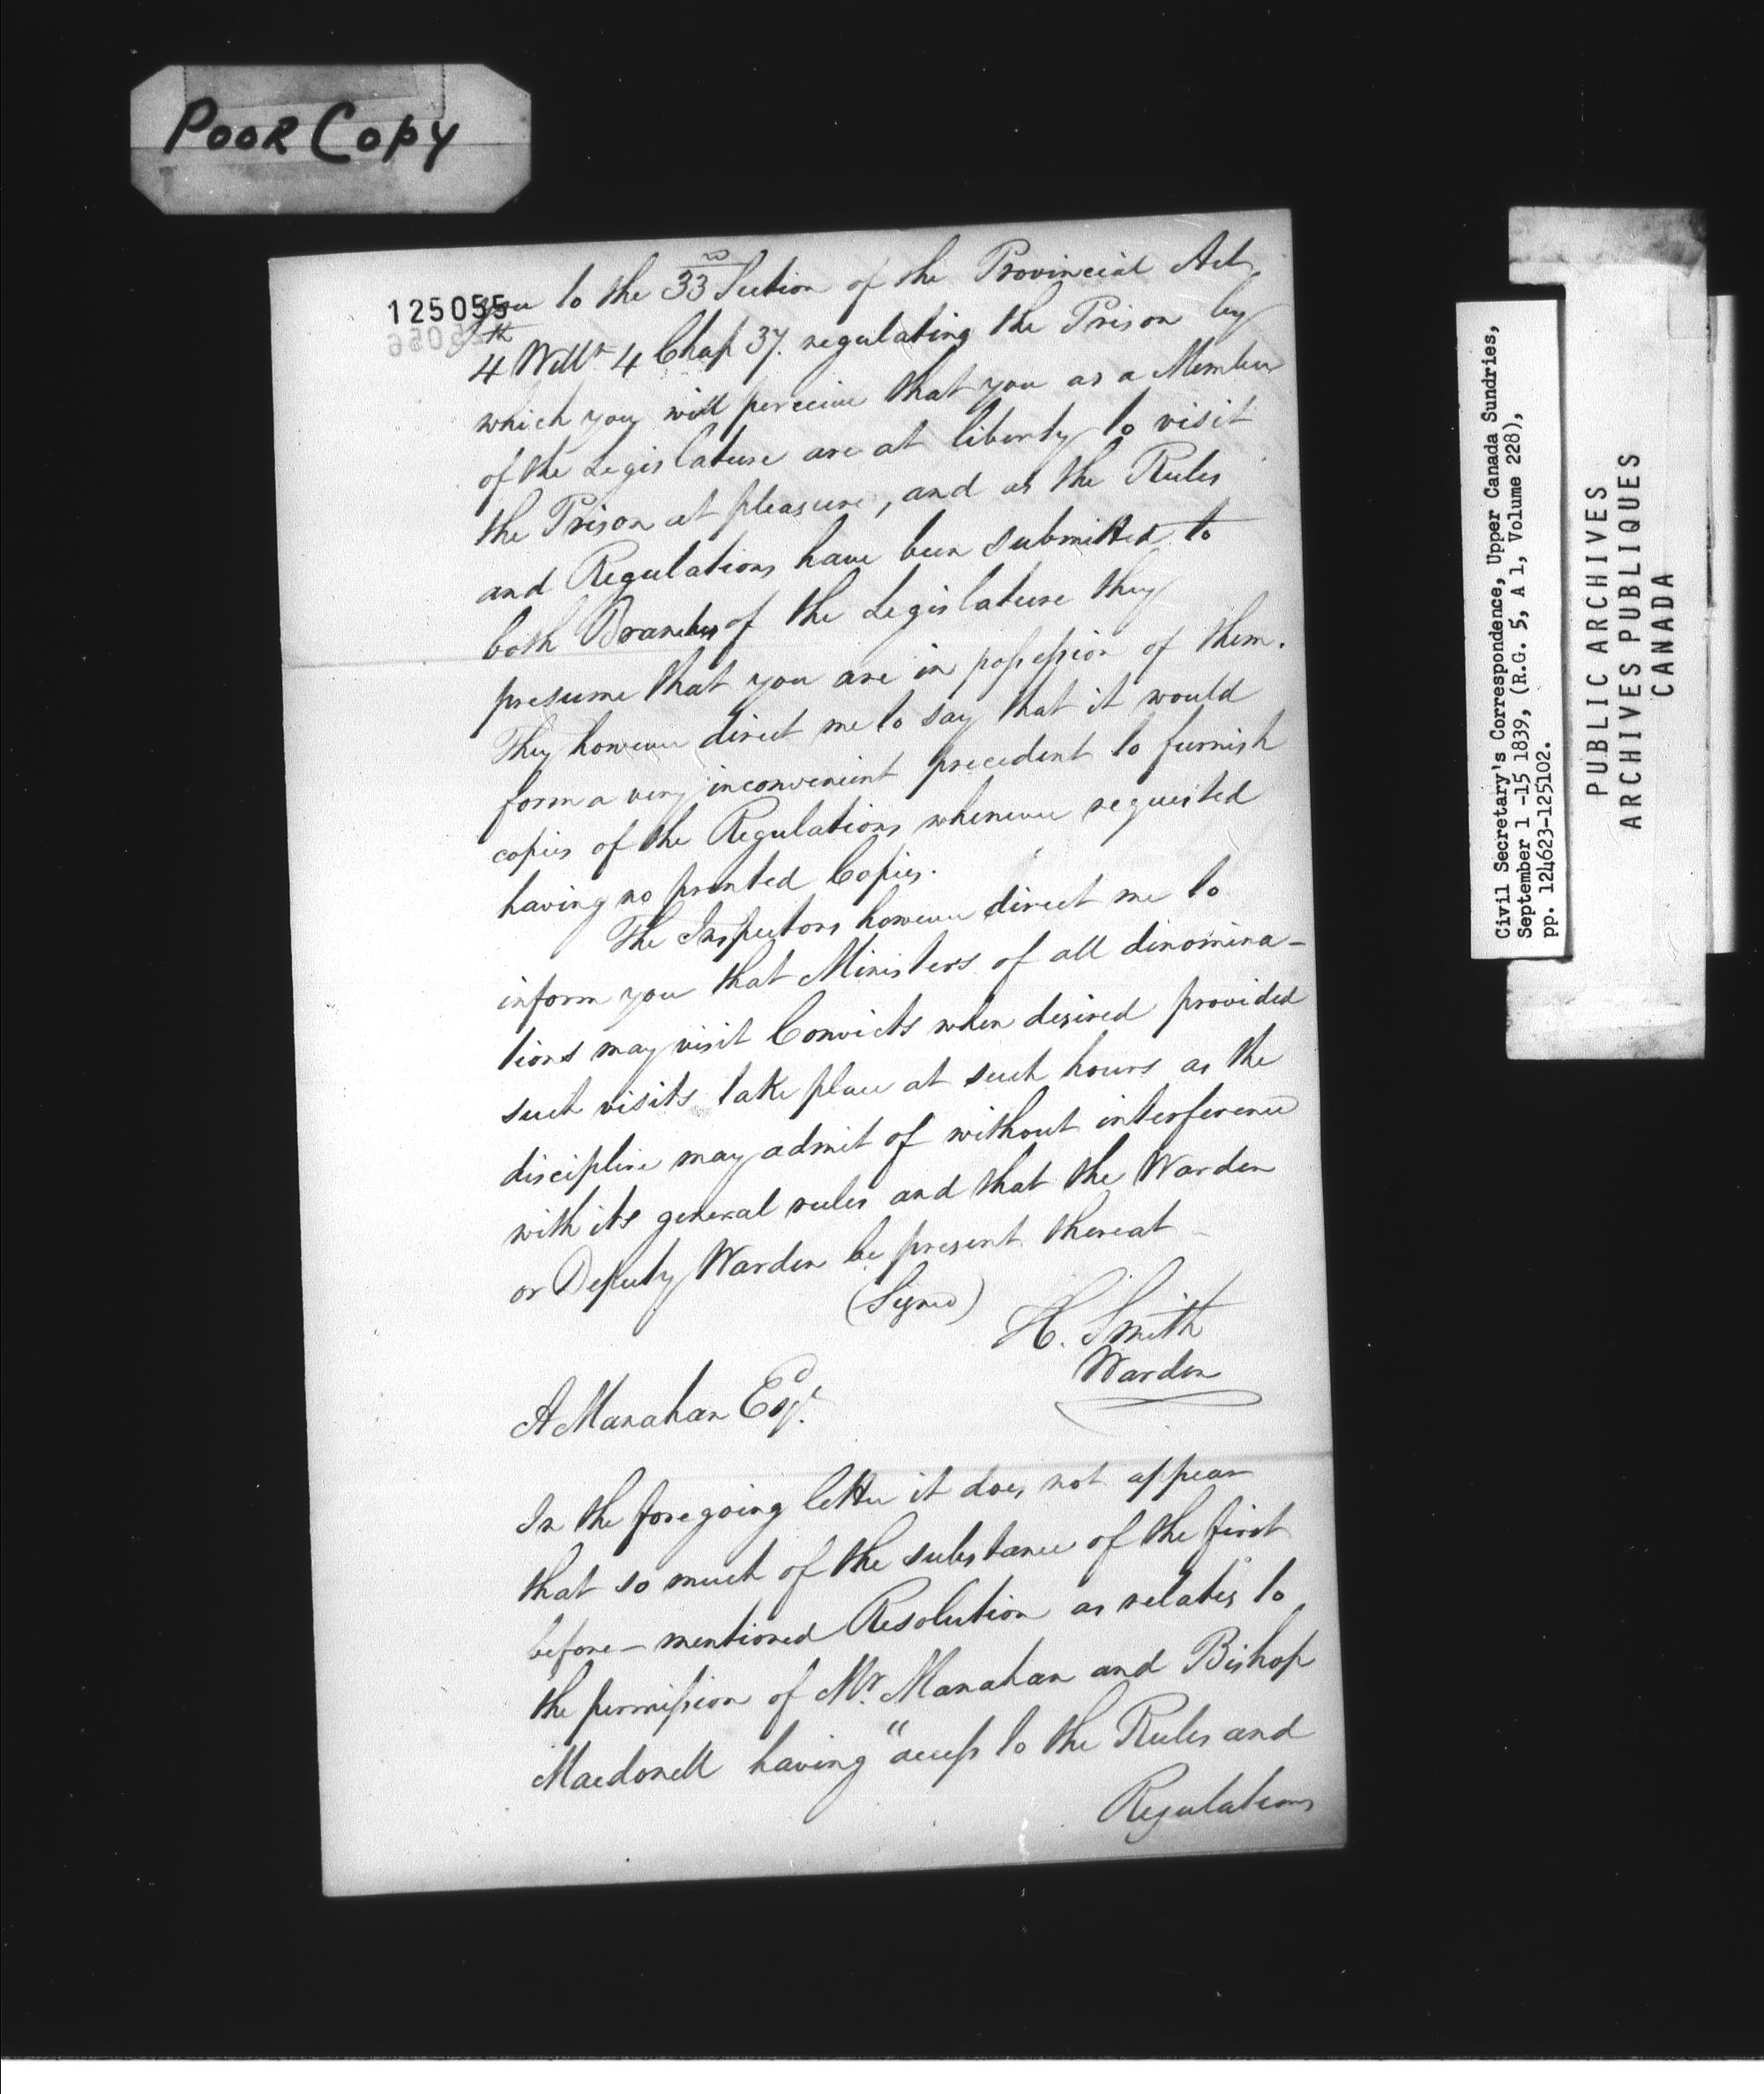 POOR COPY
125055
you to the 33rd Section of the Provincial Act,
4th Willm 4 Chap 37. regulating the Prison by
which you will perceive that you as a Member
of the Legislature are at liberty to visit
the Prison at pleasure, and as the Rules
and Regulations have been submitted to
both Branches of the Legislature they
presume that you are in possession of them.
They however direct me to say that it would
form a very inconvenient precedent to furnish
copies of the Regulations whenever requested
having no printed Copies.
The Inspectors however direct me to
inform you that Ministers of all dinomina-
tions may visit Convicts when desired provided
such visits take place at such hours as the
discipline may admit of without interference
with its general rules and that the Warden
or Deputy Warden be present thereat
(Signed) H. Smith
Warden
A Manahan Esqr.
In the foregoing letter it does not appear
that so much of the substance of the first
before-mentioned Resolution as relates to
the permission of Mr. Manahan and Bishop
Macdonell having "access to the Rules and
Regulations
Civil Secretary's Correspondence, Upper Canada Sundries,
September 1 -15 1839, (R.G. 5, A 1, Volume 228),
pp. 124623-125102.
PUBLIC ARCHIVES
ARCHIVES PUBLIQUES
CANADA